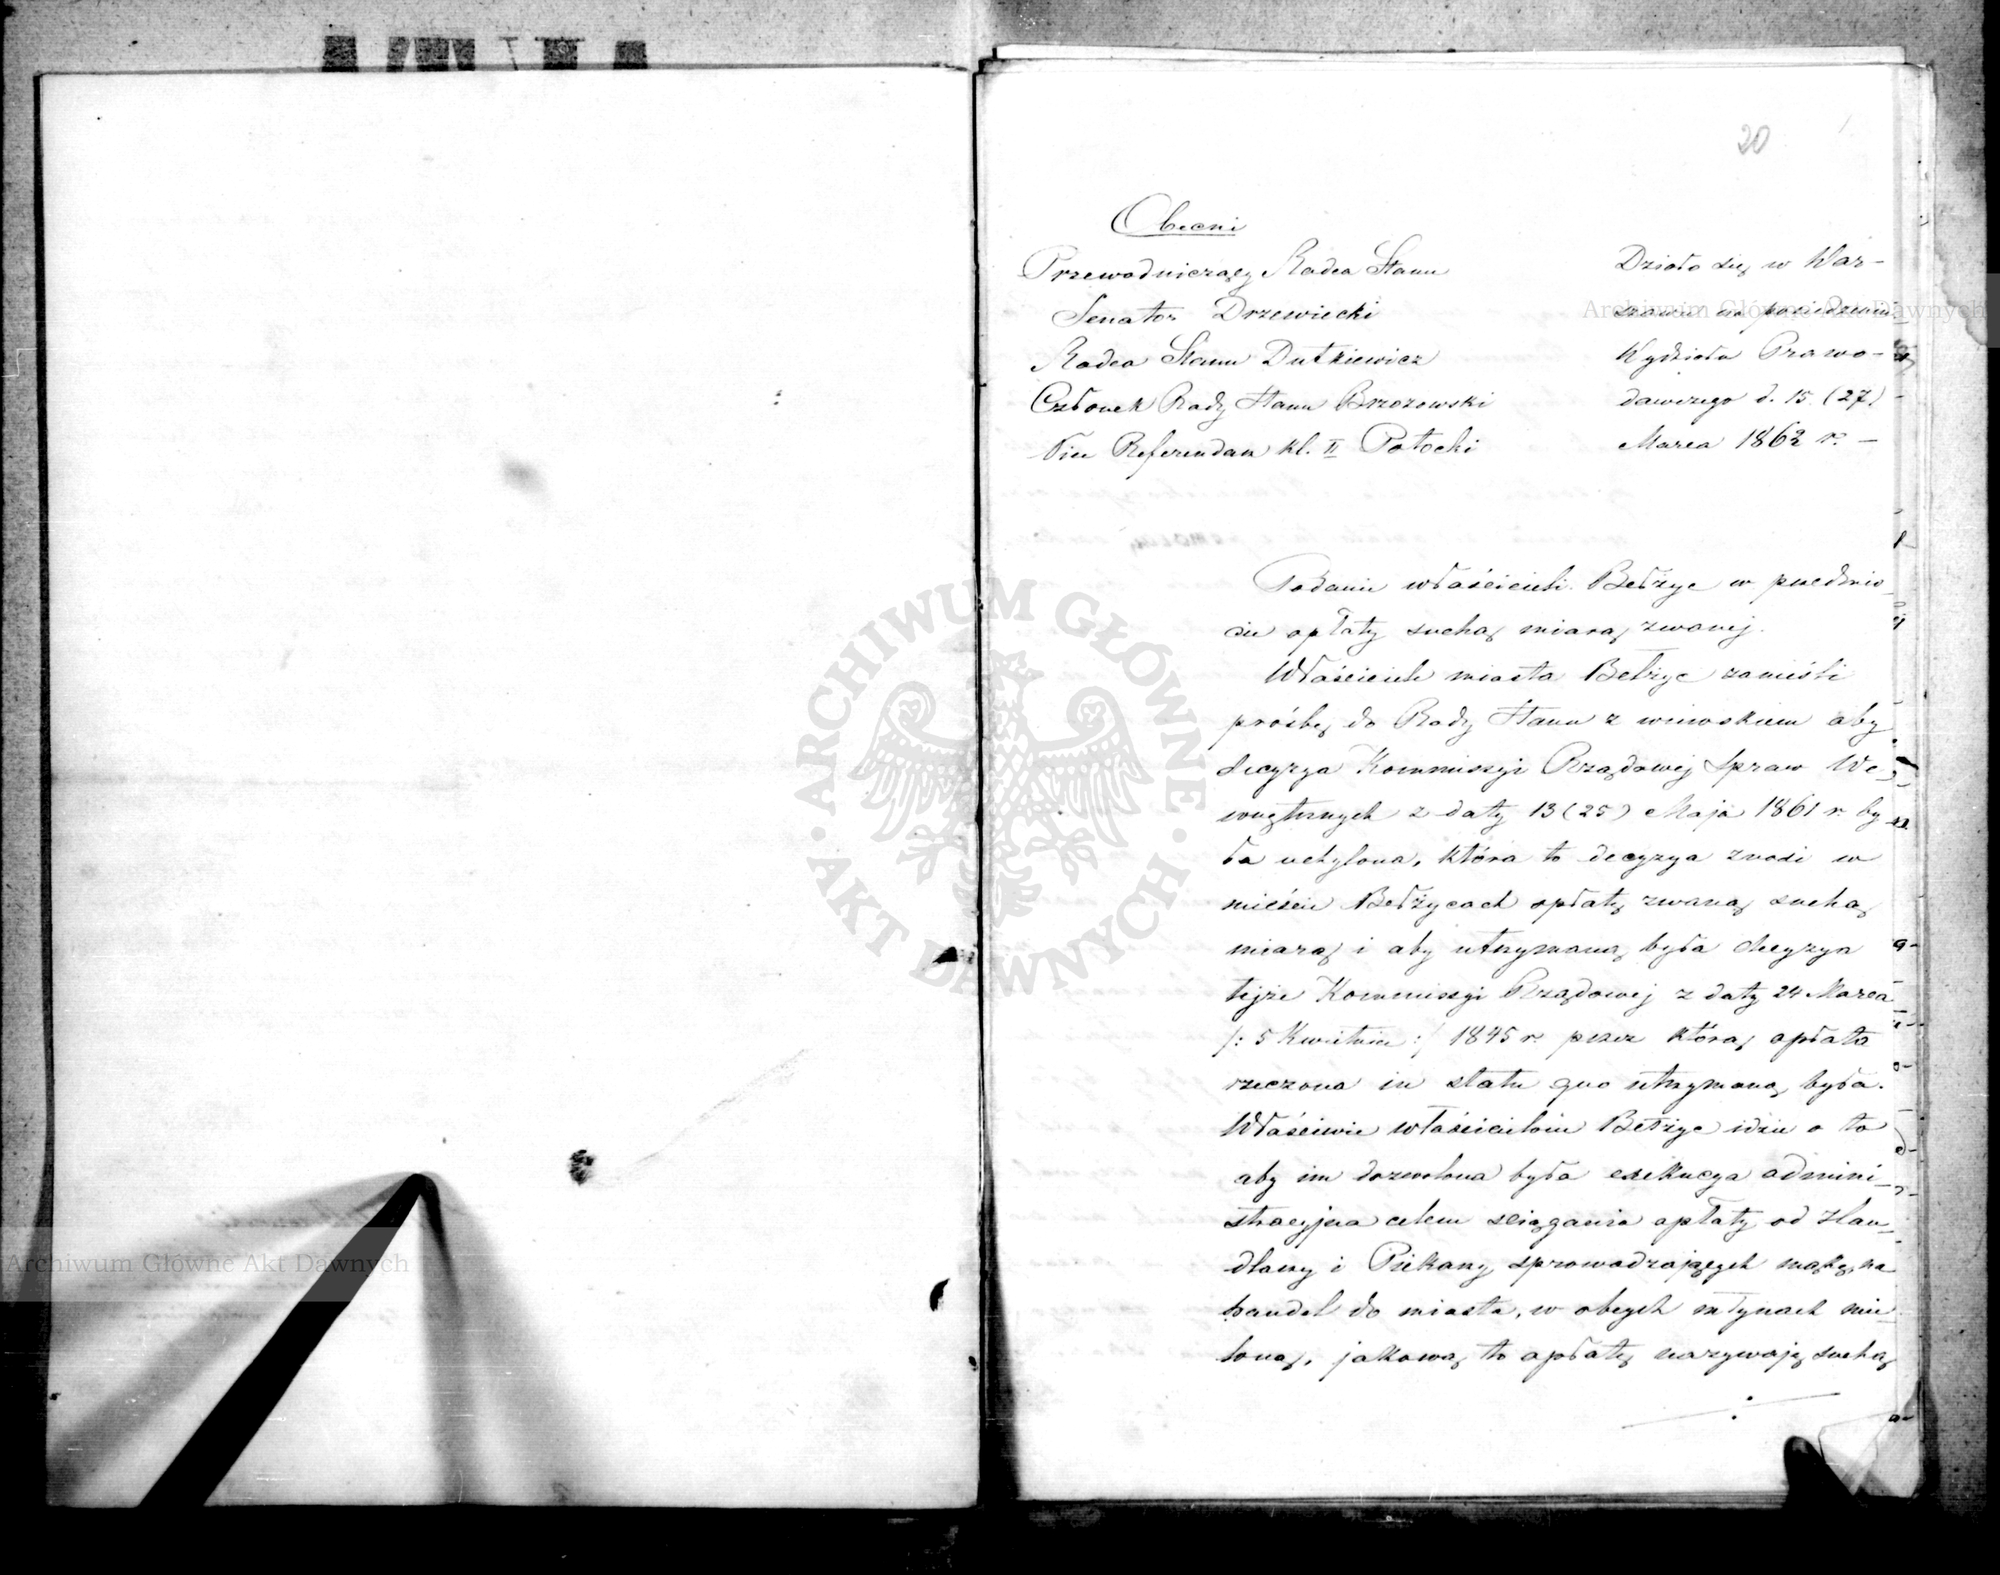 20
Obecni
Przewodniczący Radca Stanu
Senator Drzewiecki
Radca Stanu Dutkiewicz
Członek Rady Stanu Brzozowski
Vice Referendarz kl. II Potocki
Działo się w War-
szawie na posiedzeniu
Wydziału Prawo-
dawczego d. 15 (27)
Marca 1862 r. –
Podanie właścicieli Bełżyc w przedmio-
cie opłaty suchą miarą zwanej.
Właściciele miasta Bełżyc zanieśli
prośbę do Rady Stanu z wnioskiem aby
decyzya Kommissyi Rządowej Spraw We-
wnętrznych z daty 13 (25) Maja 1861 r. by-
ła uchylona, która to decyzya znosi w
mieście Bełżycach opłatę zwaną suchą
miarą i aby utrzymaną była decyzya
tejże Kommissyi Rządowej z daty 24 Marca
/: 5 Kwietnia :/ 1845 r. przez którą opłata
rzeczona in statu quo utrzymaną była.
Właściwie właścicielom Bełżyc idzie o to
aby im dozwolona była exekucya admini-
stracyjna celem ściągania opłaty od Han-
dlarzy i Piekarzy sprowadzających mąkę na
handel do miasta, w obcych młynach mie-
loną, jakową to opłatę nazywają suchą
Archiwum Główne Akt Dawnych
Archiwum Główne Akt Dawnych
ARCHIWUM GŁÓWNE · AKT DAWNYCH ·